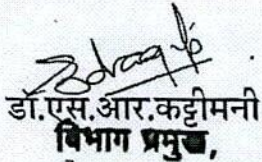 डॉ.एस.आर.कट्टीमनी
विभाग प्रमुख,